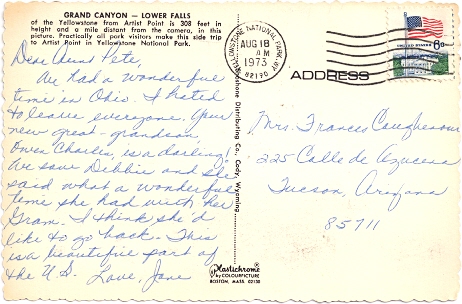 GRAND CANYON — LOWER FALLS
of the Yellowstone from Artist Point is 308 feet in
height and a mile distant from the camera, in this
picture. Practically all park visitors make this side trip
to Artist Point in Yellowstone National Park.
Dear Aunt Pete,
We had a wonderful
time in Ohio. I hated
to leave everyone. Your
new great-grandson
Owen Charlin, is a darling.
We saw Debbie and she
said what a wonderful
time she had with her
Gram. I think she'd
like to go back. This
is a beautiful part of
the U.S. Love, Jane
YELLOWSTONE NATIONAL PARK, WY
AUG 18
AM
1973
82190
UNITED STATES
6c
ADDRESS
Mrs. Frances Coughenour
225 Calle de Azucena
Tucson, Arizona
85711
Distributing Co., Cody, Wyoming
Plastichrome
BY COLOURPICTURE
BOSTON, MASS. 02130